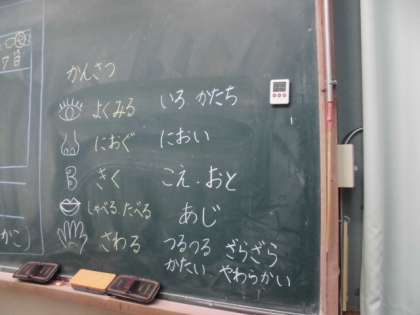 かんさつ
よくみる いろ、かたち
におぐ におい
きく こえ・おと
しゃべる、たべる あじ
さわる つるつる ざらざら
かたい やわらかい
7日